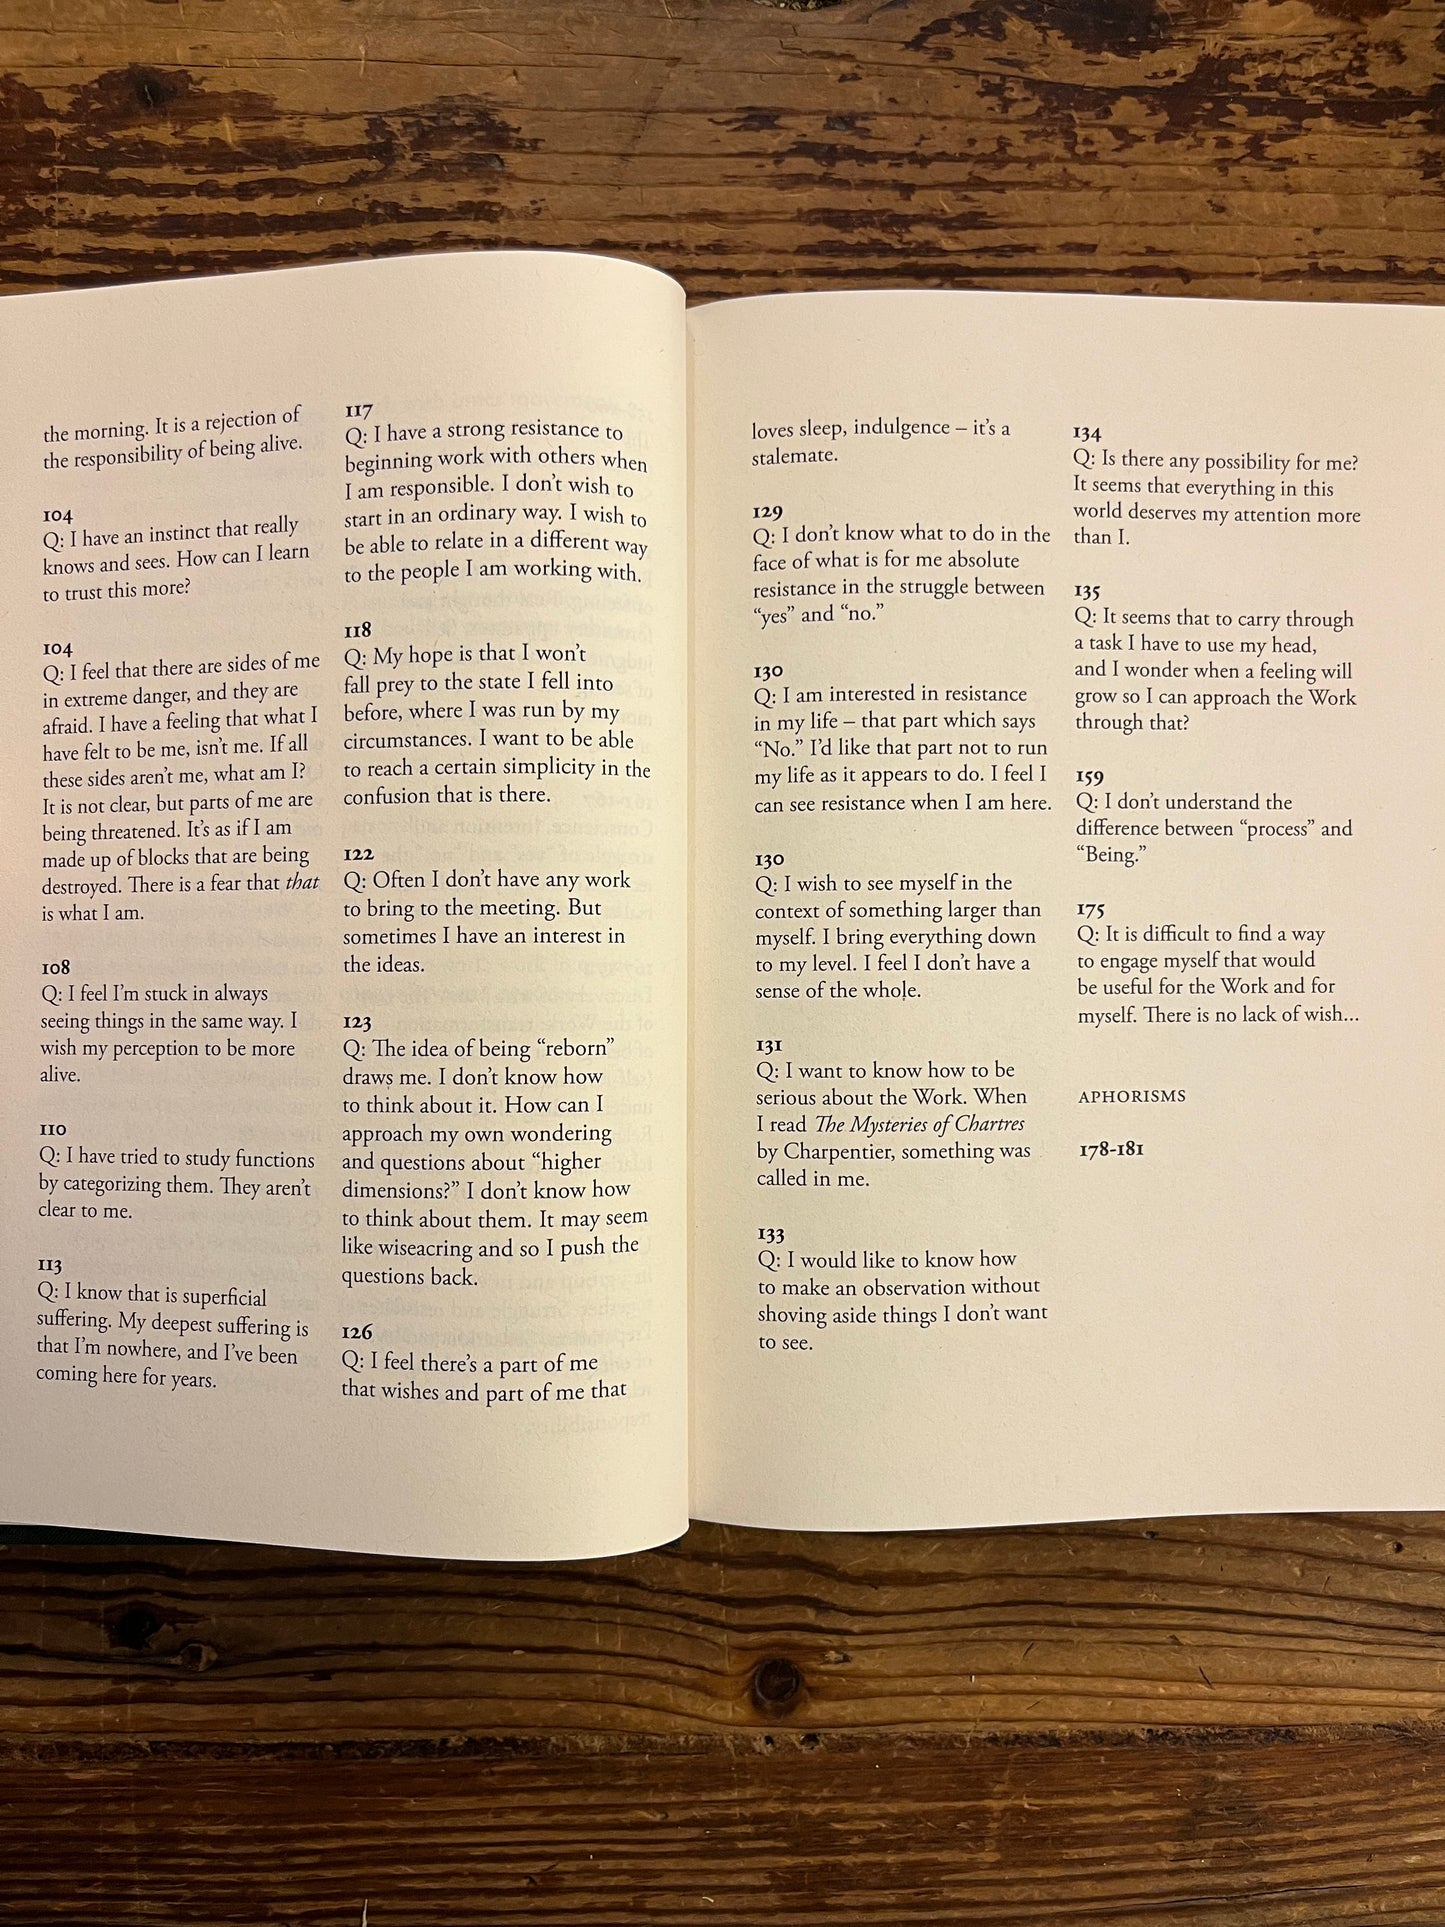 the morning. It is a rejection of
the responsibility of being alive.
104
Q: I have an instinct that really
knows and sees. How can I learn
to trust this more?
104
Q: I feel that there are sides of me
in extreme danger, and they are
afraid. I have a feeling that what I
have felt to be me, isn't me. If all
these sides aren't me, what am I?
It is not clear, but parts of me are
being threatened. It's as if I am
made up of blocks that are being
destroyed. There is a fear that that
is what I am.
108
Q: I feel I'm stuck in always
seeing things in the same way. I
wish my perception to be more
alive.
110
Q: I have tried to study functions
by categorizing them. They aren't
clear to me.
113
Q: I know that is superficial
suffering. My deepest suffering is
that I'm nowhere, and I've been
coming here for years.
117
Q: I have a strong resistance to
beginning work with others when
I am responsible. I don't wish to
start in an ordinary way. I wish to
be able to relate in a different way
to the people I am working with.
118
Q: My hope is that I won't
fall prey to the state I fell into
before, where I was run by my
circumstances. I want to be able
to reach a certain simplicity in the
confusion that is there.
122
Q: Often I don't have any work
to bring to the meeting. But
sometimes I have an interest in
the ideas.
123
Q: The idea of being "reborn"
draws me. I don't know how
to think about it. How can I
approach my own wondering
and questions about "higher
dimensions?" I don't know how
to think about them. It may seem
like wiseacring and so I push the
questions back.
126
Q: I feel there's a part of me
that wishes and part of me that
loves sleep, indulgence – it's a
stalemate.
129
Q: I don't know what to do in the
face of what is for me absolute
resistance in the struggle between
"yes" and "no."
130
Q: I am interested in resistance
in my life – that part which says
"No." I'd like that part not to run
my life as it appears to do. I feel I
can see resistance when I am here.
130
Q: I wish to see myself in the
context of something larger than
myself. I bring everything down
to my level. I feel I don't have a
sense of the whole.
131
Q: I want to know how to be
serious about the Work. When
I read The Mysteries of Chartres
by Charpentier, something was
called in me.
133
Q: I would like to know how
to make an observation without
shoving aside things I don't want
to see.
134
Q: Is there any possibility for me?
It seems that everything in this
world deserves my attention more
than I.
135
Q: It seems that to carry through
a task I have to use my head,
and I wonder when a feeling will
grow so I can approach the Work
through that?
159
Q: I don't understand the
difference between "process" and
"Being."
175
Q: It is difficult to find a way
to engage myself that would
be useful for the Work and for
myself. There is no lack of wish...
APHORISMS
178-181